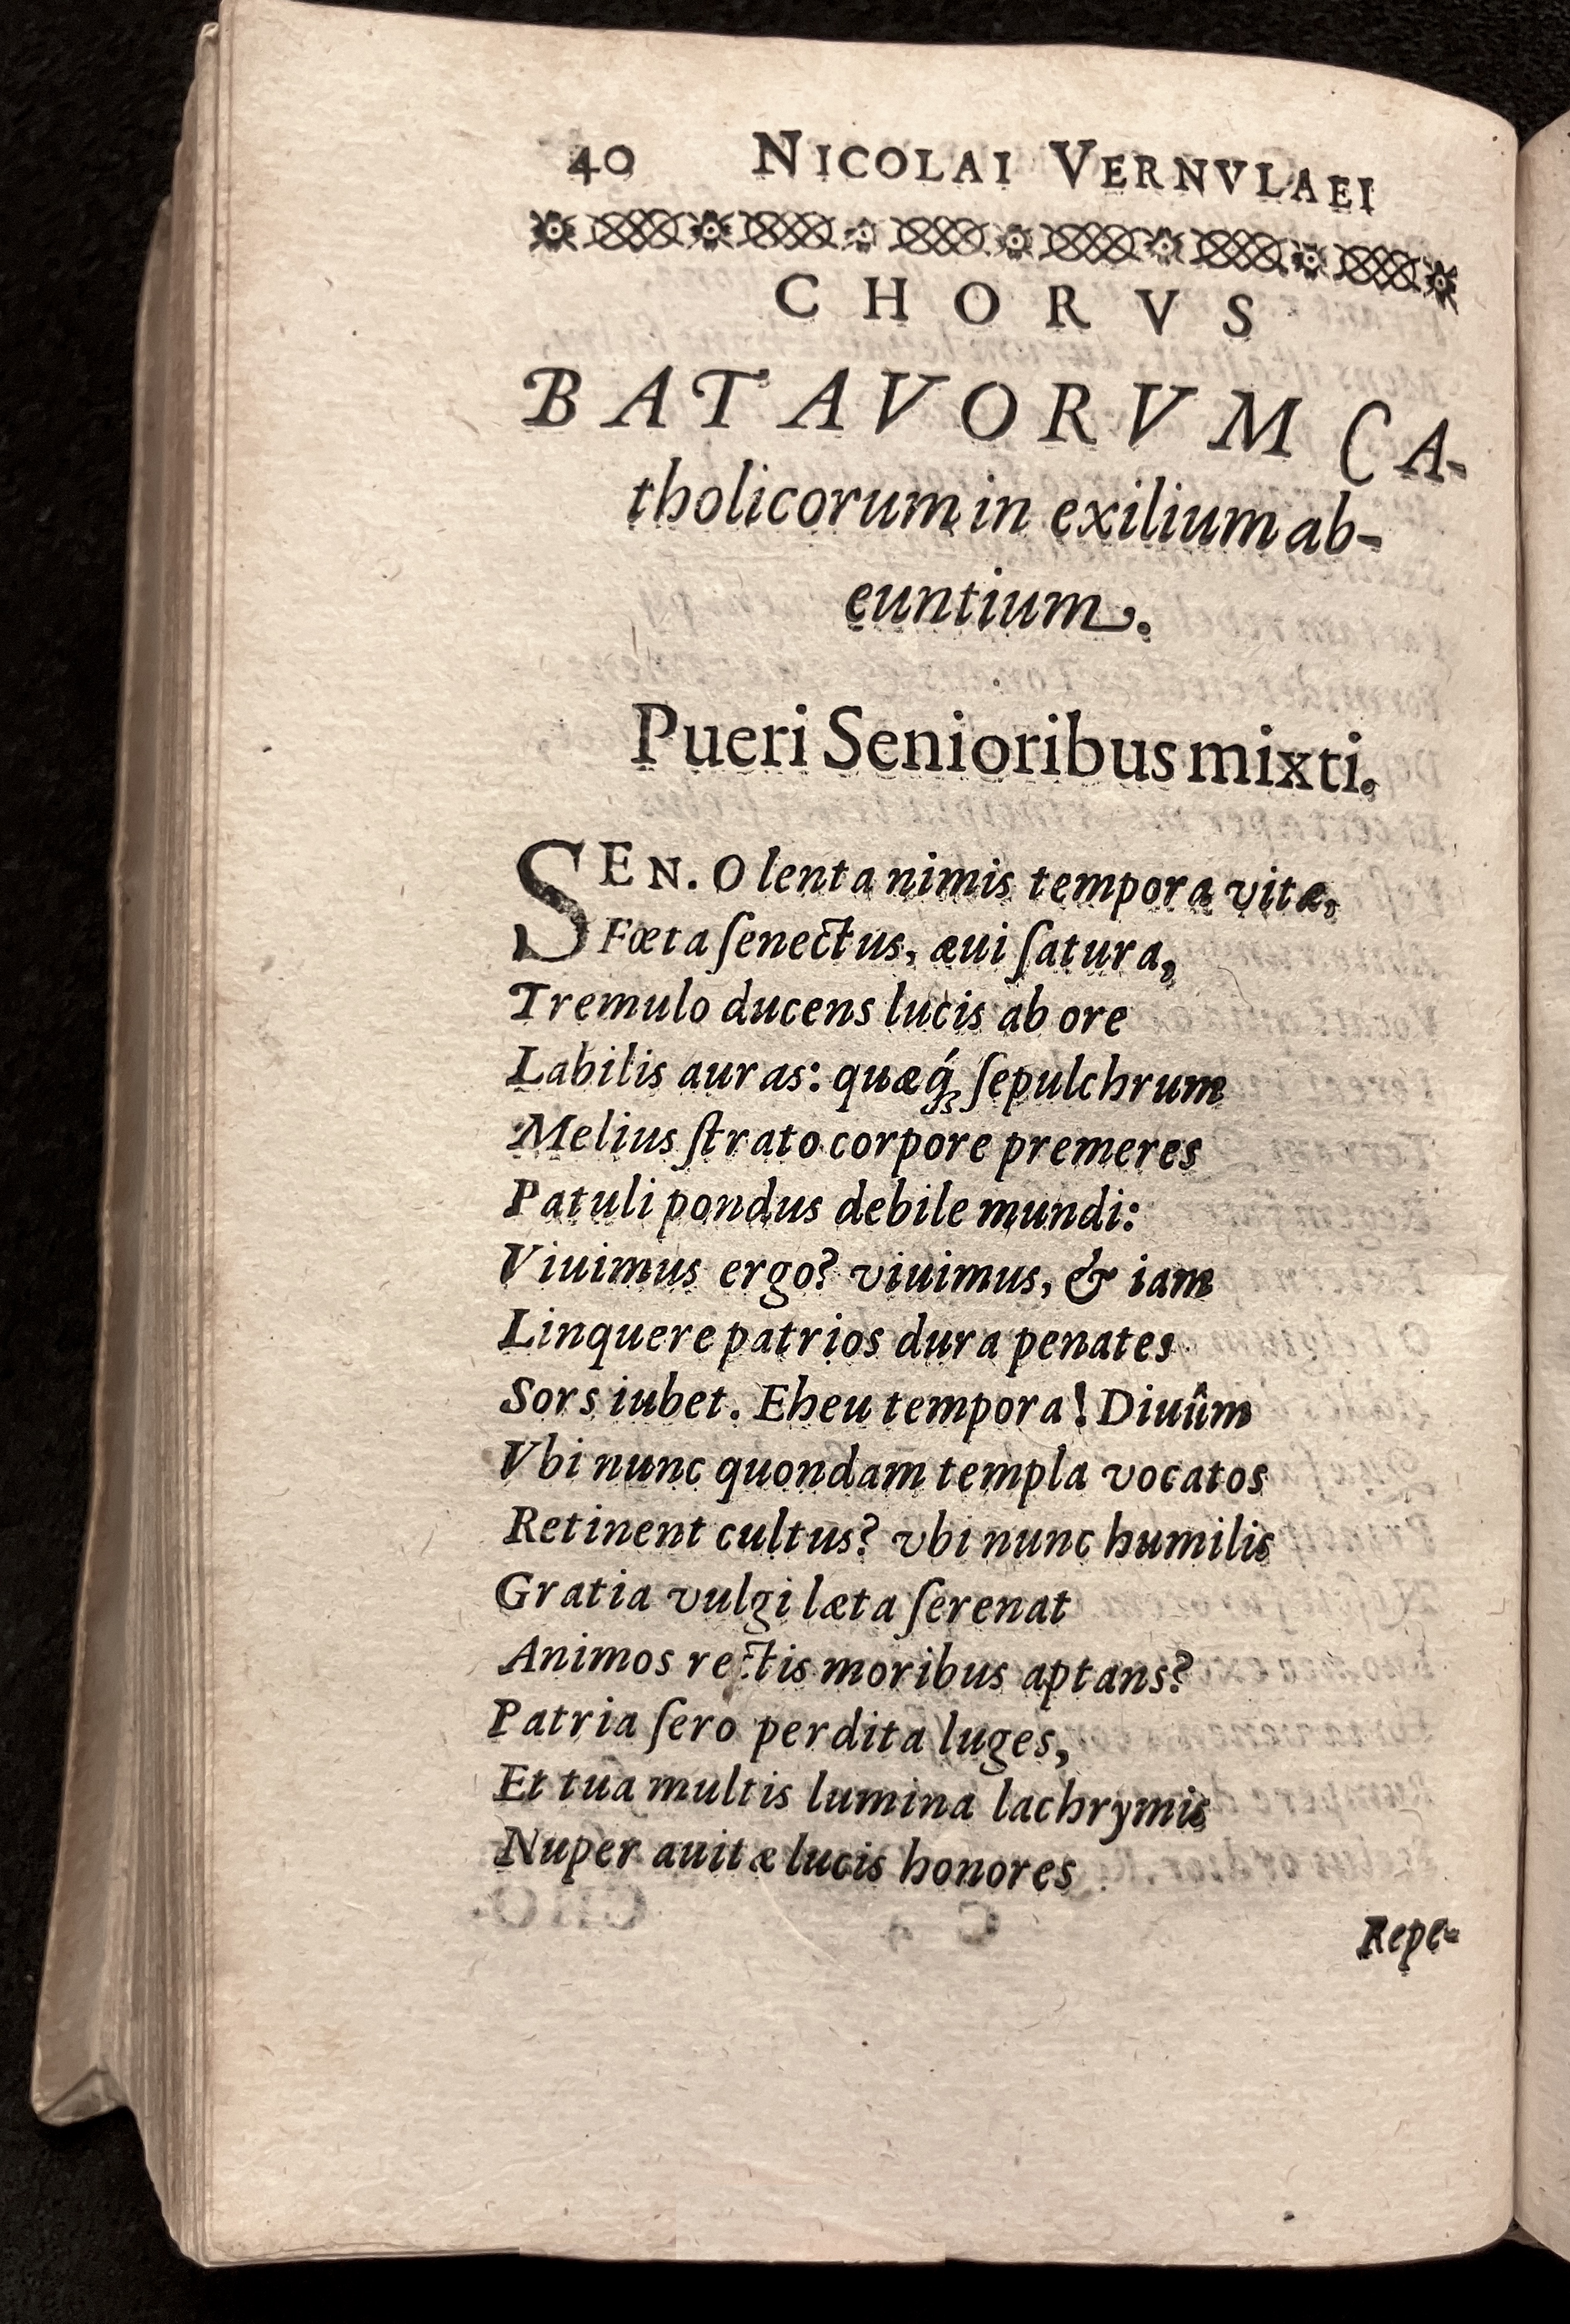 40 NICOLAI VERNVLAEI
CHORVS
BATAVORVM CA-
tholicorum in exilium ab-
euntium.
Pueri Senioribus mixti.
SEN. O lenta nimis tempora vitæ,
Fœta ſenectus, æui ſatura,
Tremulo ducens lucis ab ore
Labilis auras: quæq́ꝫ ſepulchrum
Melius ſtrato corpore premeres
Patuli pondus debile mundi:
Viuimus ergo? viuimus, & iam
Linquere patrios dura penates
Sors iubet. Eheu tempora! Diuûm
Vbi nunc quondam templa vocatos
Retinent cultus? vbi nunc humilis
Gratia vulgi læta ſerenat
Animos rectis moribus aptans?
Patria ſero perdita luges,
Et tua multis lumina lachrymis
Nuper auitæ lucis honores
Repe-